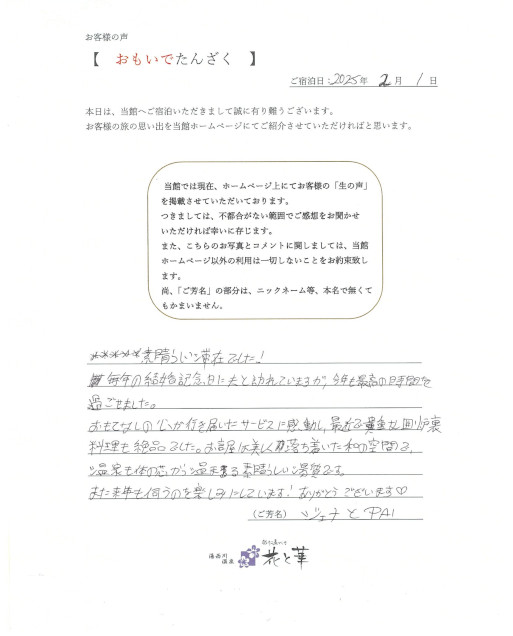 お客様の声
【 おもいでたんざく 】
ご宿泊日:2025年 2月 1日
本日は、当館へご宿泊いただきまして誠に有り難うございます。
お客様の旅の思い出を当館ホームページにてご紹介させていただければと思います。
当館では現在、ホームページ上にてお客様の「生の声」
を掲載させていただいております。
つきましては、不都合がない範囲でご感想をお聞かせ
いただければ幸いに存じます。
また、こちらのお写真とコメントに関しましては、当館
ホームページ以外の利用は一切しないことをお約束致し
ます。
尚、「ご芳名」の部分は、ニックネーム等、本名で無くて
もかまいません。
*****素晴らしい滞在でした!
毎年の結婚記念日に夫と訪れていますが、今年も最高の時間を
過ごせました。
おもてなしの心が行き届いたサービスに感動し、囲炉裏
料理も絶品でした。お部屋は美しく落ち着いた和の空間で、
温泉も体の芯から温まる素晴らしい湯質です。
また来年も伺うのを楽しみにしています!ありがとうございます♡
(ご芳名) ジェナとPAI
湯西川
温泉
花と華